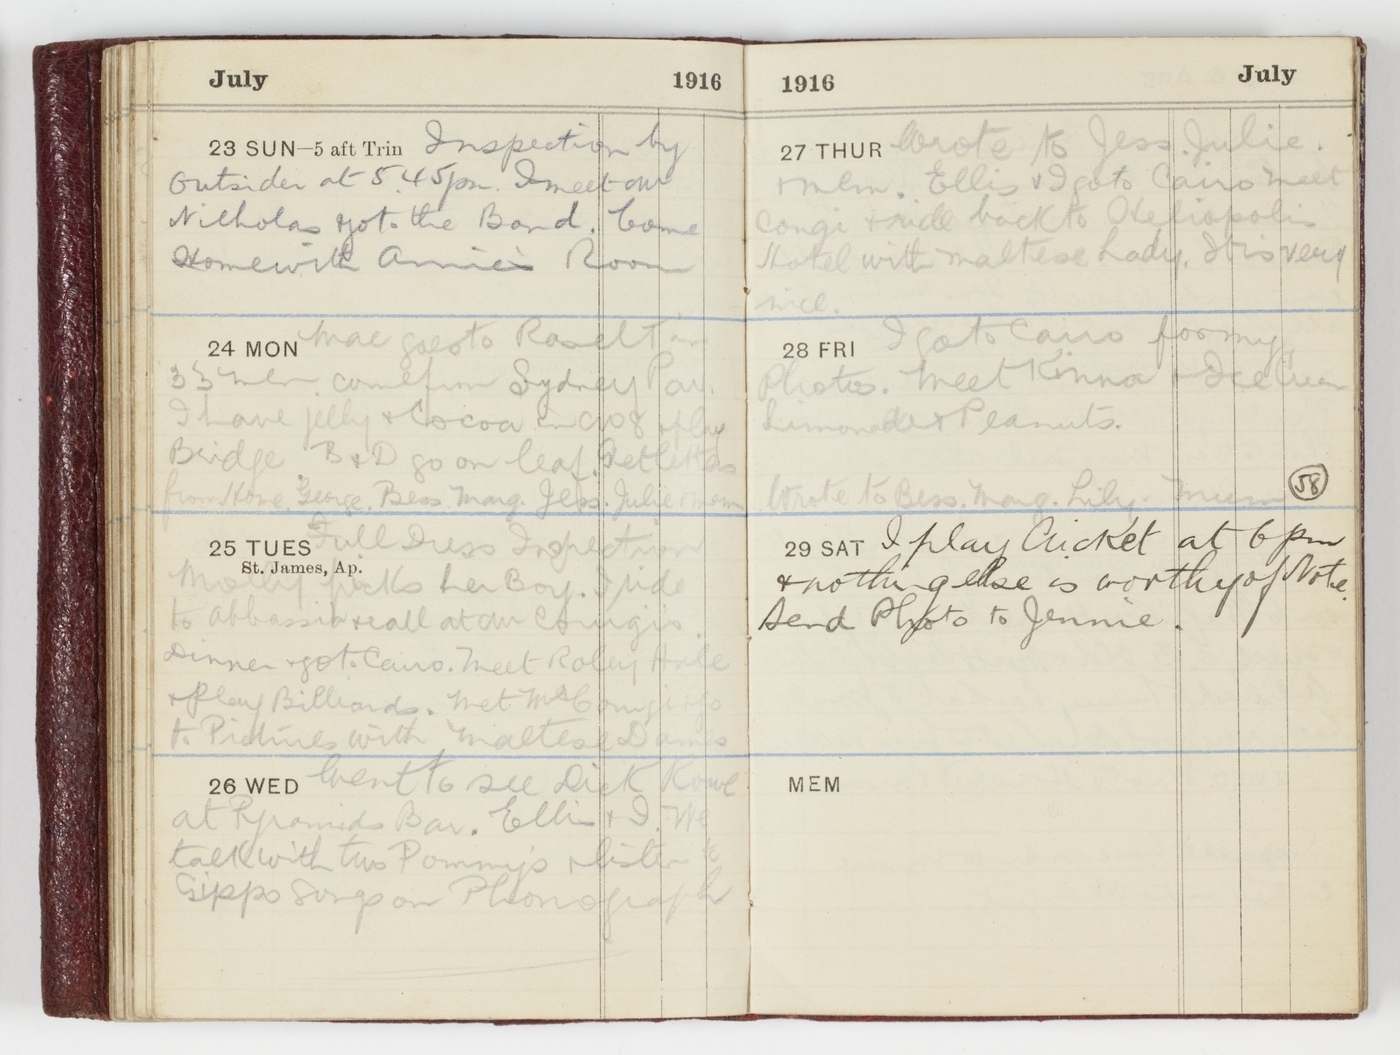 July 1916
23 SUN—5 aft Trin Inspection by
Outsider at 5.45pm. I meet our
Nicholas & got the Band. Come
Home with Annie's Room
24 MON Mac goes to
33 men come from Sydney Par.
I have jelly & Cocoa in C108 & play
Bridge B & D go on leaf. Get letters
from Home. George. Bess. Marg. Jess. Julie & mem
25 TUES Full Dress Inspection
St. James, Ap.
Molly her Boy. I ride
to Abbassia & call at our Congis.
Dinner & go to Cairo. Meet Roley
& play Billiards. Met & go
to Pictures with Maltese Dames
26 WED Went to see Dick Rowe
at Pyramids Bar. Ellis & I. We
talk with two Pommy's & listen to
Gippo Songs on Phonograph
1916 July
27 THUR Wrote to Jess. Julie.
& mem. Ellis & I go to Cairo meet
Congi & ride back to Heliopolis
Hotel with Maltese Lady. It is very
nice.
28 FRI I go to Cairo for my
Photos. Meet Kinna & Ice Cream
Limonade & Peanuts.
Wrote to Bess. Marg. Lily. Mum
58
29 SAT I play Cricket at 6pm
& nothing else is worthy of Note.
Send Photo to Jennie.
MEM